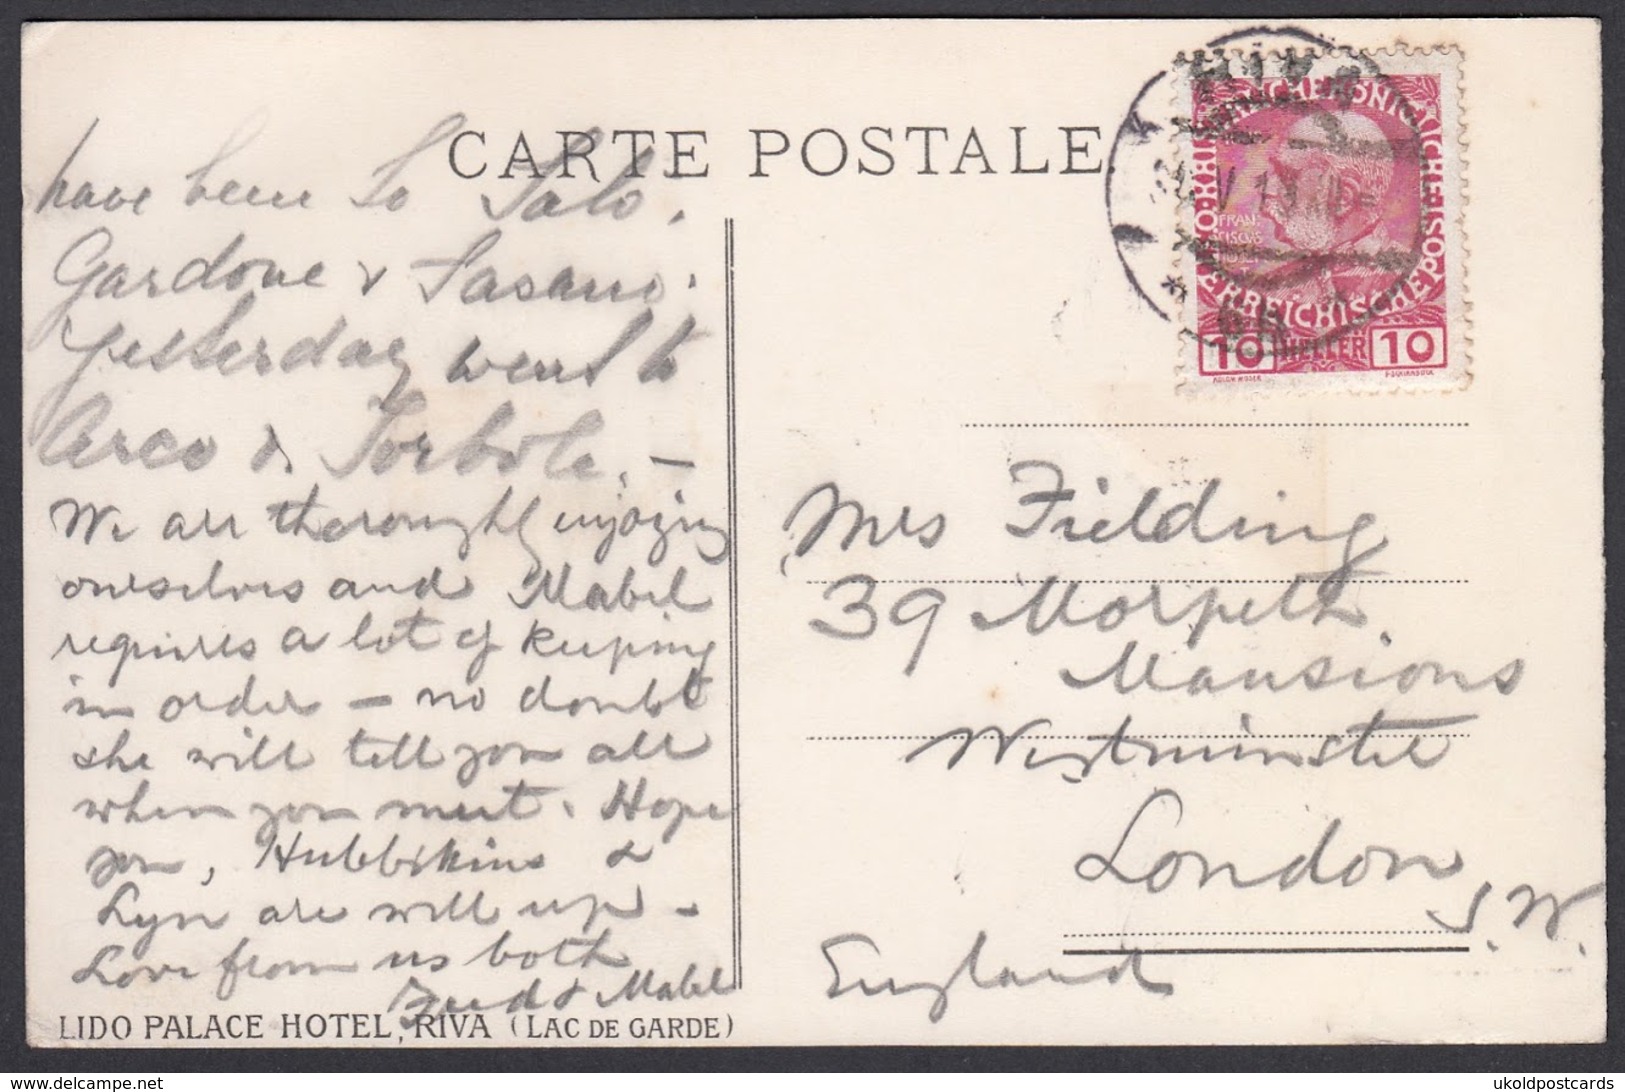 CARTE POSTALE
have been to Salo,
Gardone & Fasano.
Yesterday went to
Arco & Torbole. –
We are thoroughly enjoying
ourselves and Mabel
requires a lot of keeping
in order – no doubt
she will tell you all
when you meet. Hope
you, Hubbikins &
Lyn are will up –
Love from us both
Fred & Mabel
LIDO PALACE HOTEL, RIVA (LAC DE GARDE)
RIVA
6B
FRAN
CISCVS
10 HELLER 10
Mrs Fielding
39 Morpeth
Mansions
Westminster
London
S.W.
England
ukoldpostcards